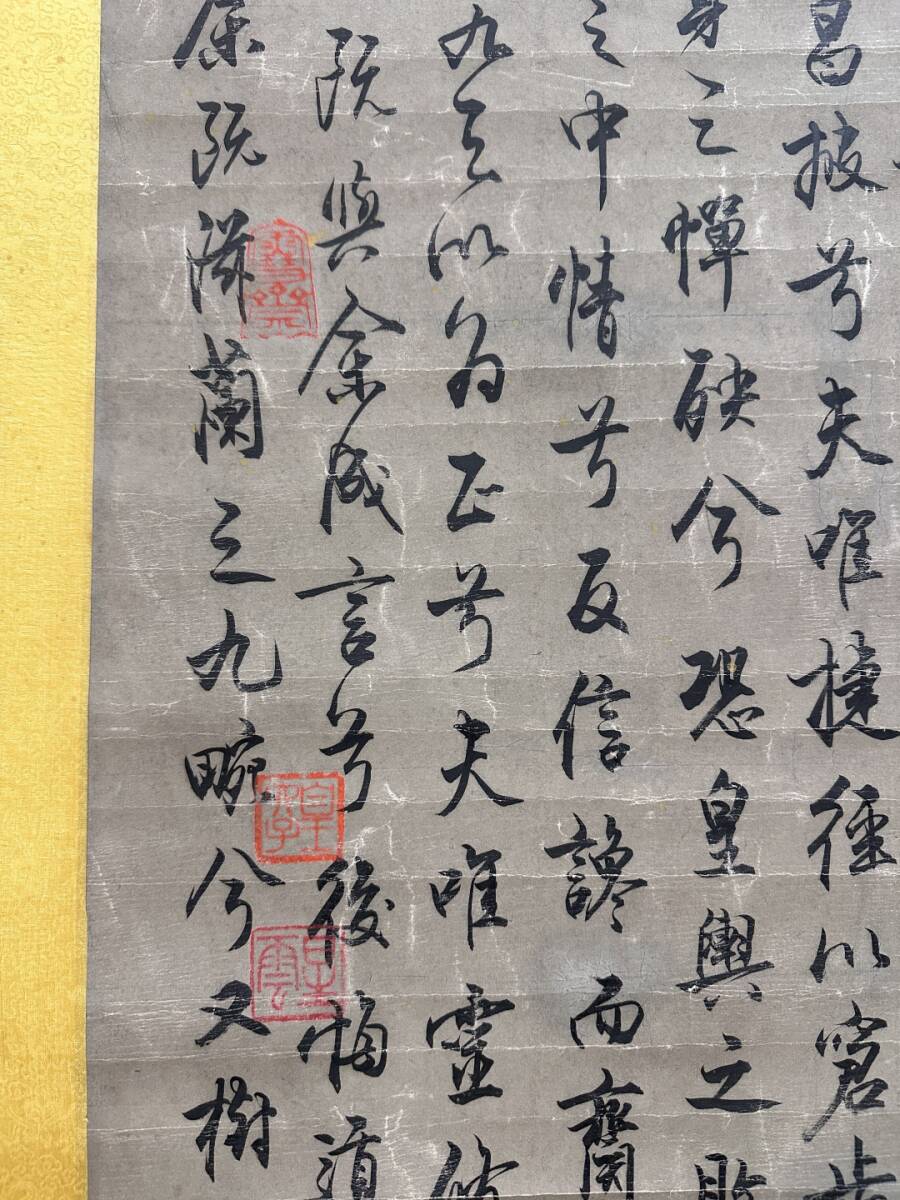 昌披兮夫唯捷徑以窘步
身之憚殃兮恐皇輿之敗
之中情兮反信讒而齌
九天以為正兮夫唯靈脩
既與余成言兮後悔遁
余既滋蘭之九畹兮又樹